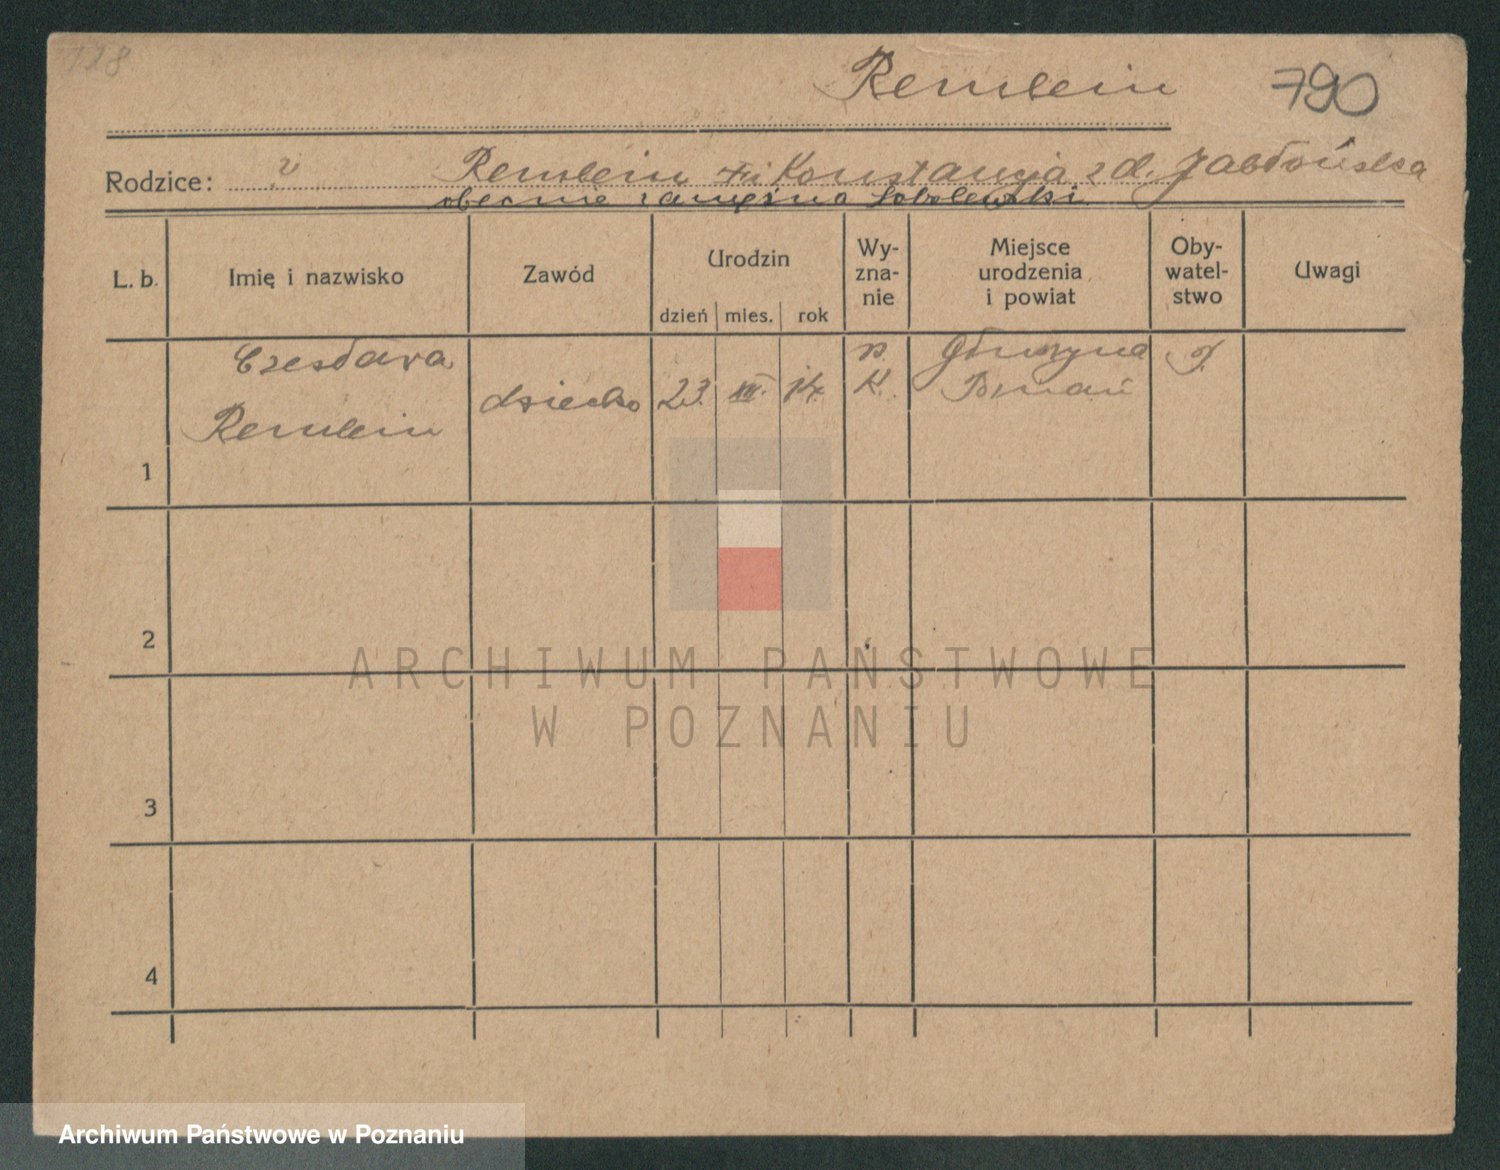 128
Remlein 790
Rodzice: ? Remlein i Konstancja z d. Jabłońska
obecnie zamężna Sobolewski
L. b. Imię i nazwisko Zawód Urodzin Wy-zna-nie Miejsce urodzenia i powiat Oby-watel-stwo Uwagi
dzień mies. rok
Czesława r. Głuszyna
dziecko 23. VII. 14. K. Poznań
Remlein
1
2
3
4
ARCHIWUM PAŃSTWOWE
W POZNANIU
Archiwum Państwowe w Poznaniu